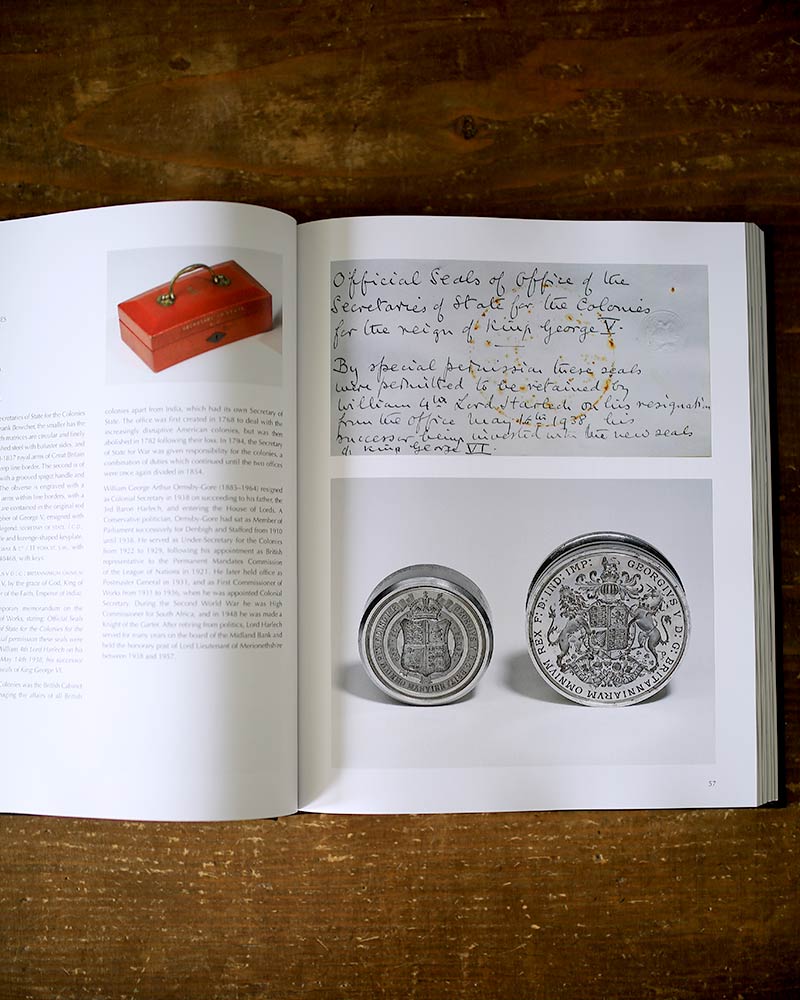 ES
ecretaries of State for the Colonies
rank Bowcher, the smaller has the
th matrices are circular and finely
shed steel with baluster sides, and
-1837 royal arms of Great Britain
rep line border. The second is of
with a grooved spigot handle and
The obverse is engraved with a
arms within line borders, with a
are contained in the original red
pher of George V, ensigned with
legend SECRETARY OF STATE
le and lozenge-shaped keyplate.
with keys.
V, by the grace of God, King of
er of the Faith, Emperor of India;
porary memorandum on the
of Works, stating: Official Seals
of State for the Colonies for the
cial permission these seals were
William 4th Lord Harlech on his
May 14th 1938, his successor
seals of King George VI.
Colonies was the British Cabinet
naging the affairs of all British
SECRETARY OF STATE
colonies apart from India, which had its own Secretary of
State. The office was first created in 1768 to deal with the
increasingly disruptive American colonies, but was then
abolished in 1782 following their loss. In 1794, the Secretary
of State for War was given responsibility for the colonies, a
combination of duties which continued until the two offices
were once again divided in 1854.
William George Arthur Ormsby-Gore (1885–1964) resigned
as Colonial Secretary in 1938 on succeeding to his father, the
3rd Baron Harlech, and entering the House of Lords. A
Conservative politician, Ormsby-Gore had sat as Member of
Parliament successively for Denbigh and Stafford from 1910
until 1938. He served as Under-Secretary for the Colonies
from 1922 to 1929, following his appointment as British
representative to the Permanent Mandates Commission
of the League of Nations in 1921. He later held office as
Postmaster General in 1931, and as First Commissioner of
Works from 1931 to 1936, when he was appointed Colonial
Secretary. During the Second World War he was High
Commissioner for South Africa, and in 1948 he was made a
Knight of the Garter. After retiring from politics, Lord Harlech
served for many years on the board of the Midland Bank and
held the honorary post of Lord Lieutenant of Merionethshire
between 1938 and 1957.
Official Seals of Office of the
Secretaries of State for the Colonies
for the reign of King George V.
By special permission these seals
were permitted to be retained by
William 4th Lord Harlech on his resignation
from the office May 14th 1938 his
successor being invested with the new seals
of King George VI.
GEORGIVS V D: G: BRITANNIARVM OMNIVM REX F: D: IND: IMP:
57